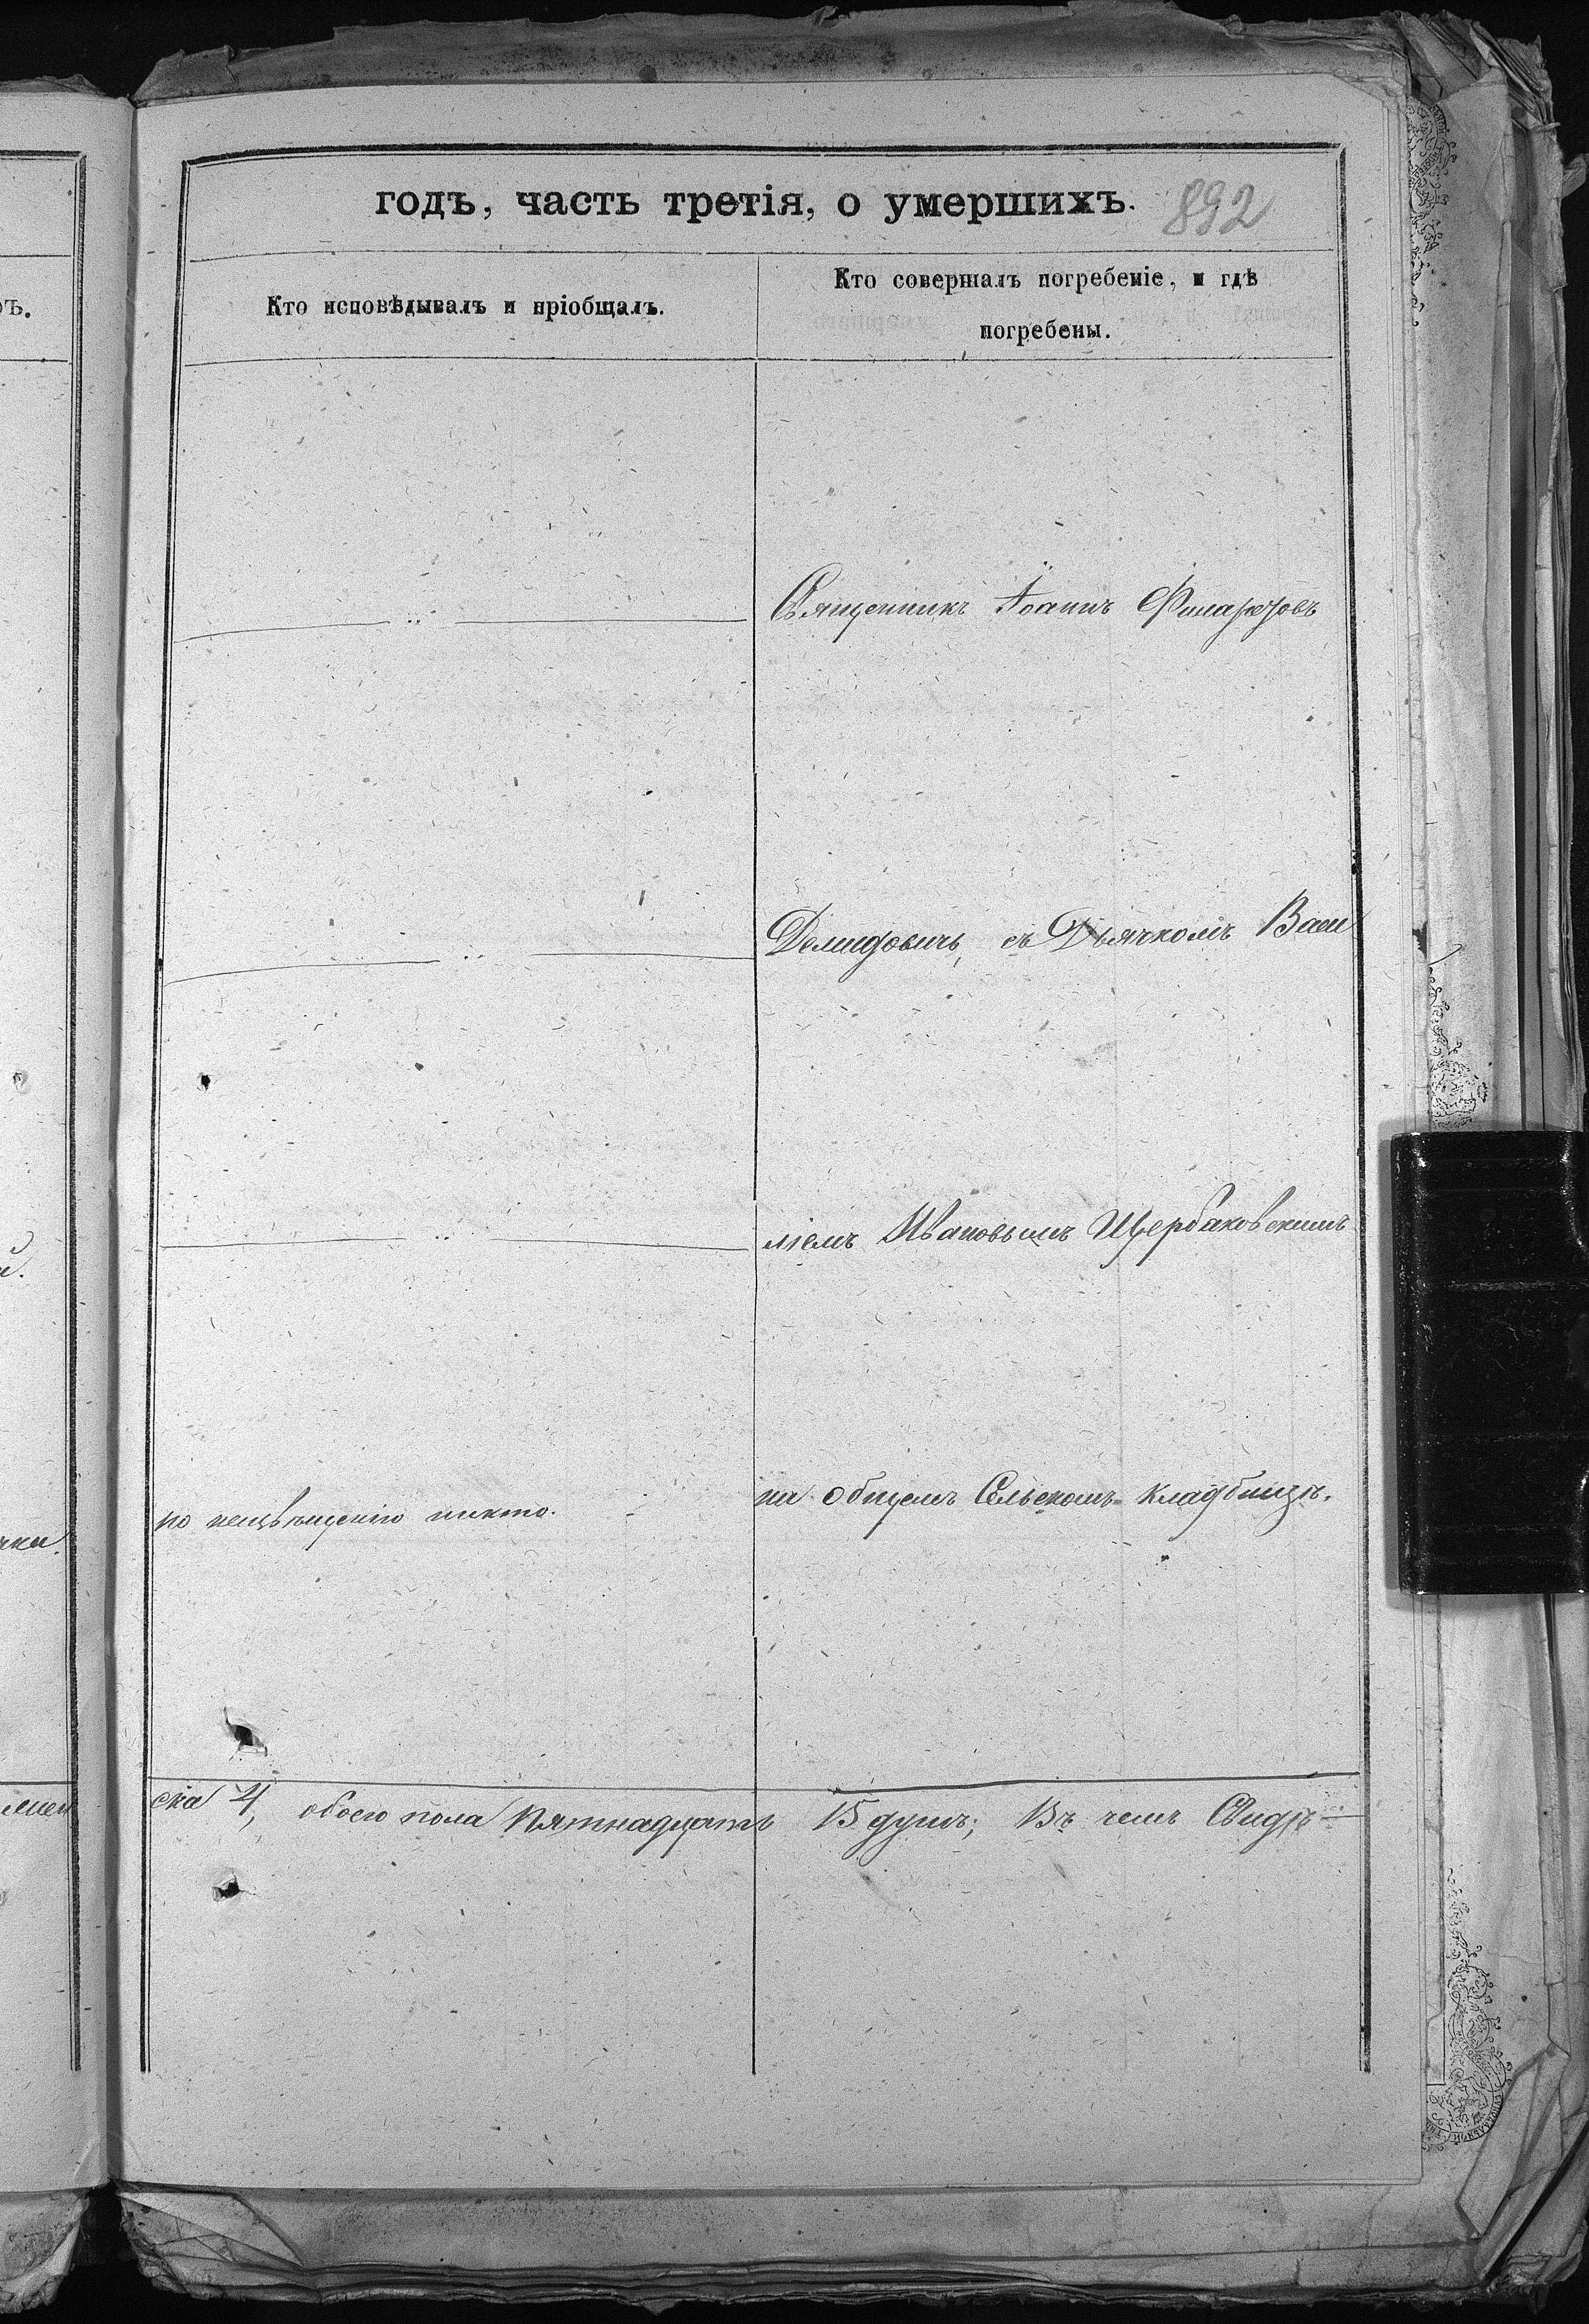 годъ, часть третія, о умершихъ. 892
Кто исповѣдывалъ и пріобщалъ.
Кто совершалъ погребеніе, и гдѣ
погребены.
Священникъ Іоаннъ Филаретовъ
Демидовичъ, съ Дьячкомъ Васи
ліемъ Ивановымъ Щербаковскимъ
на общемъ Сельскомъ кладбищѣ.
по неизвѣщенію никто.
ска 4, обоего пола пятнадцать 15 душъ; Въ чемъ Свидѣ